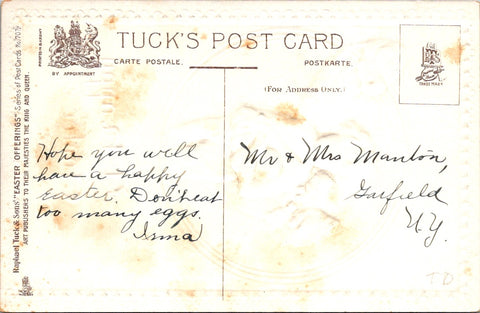 TUCK'S POST CARD
CARTE POSTALE.
POSTKARTE.
BY APPOINTMENT
(FOR ADDRESS ONLY.)
TRADE MARK
Raphael Tuck & Sons' "EASTER OFFERINGS" Series of Post Cards No. 709
ART PUBLISHERS TO THEIR MAJESTIES THE KING AND QUEEN.
Hope you will
have a happy
Easter. Don't eat
too many eggs.
Irma
Mr & Mrs Manton,
Garfield
N.Y.
T D